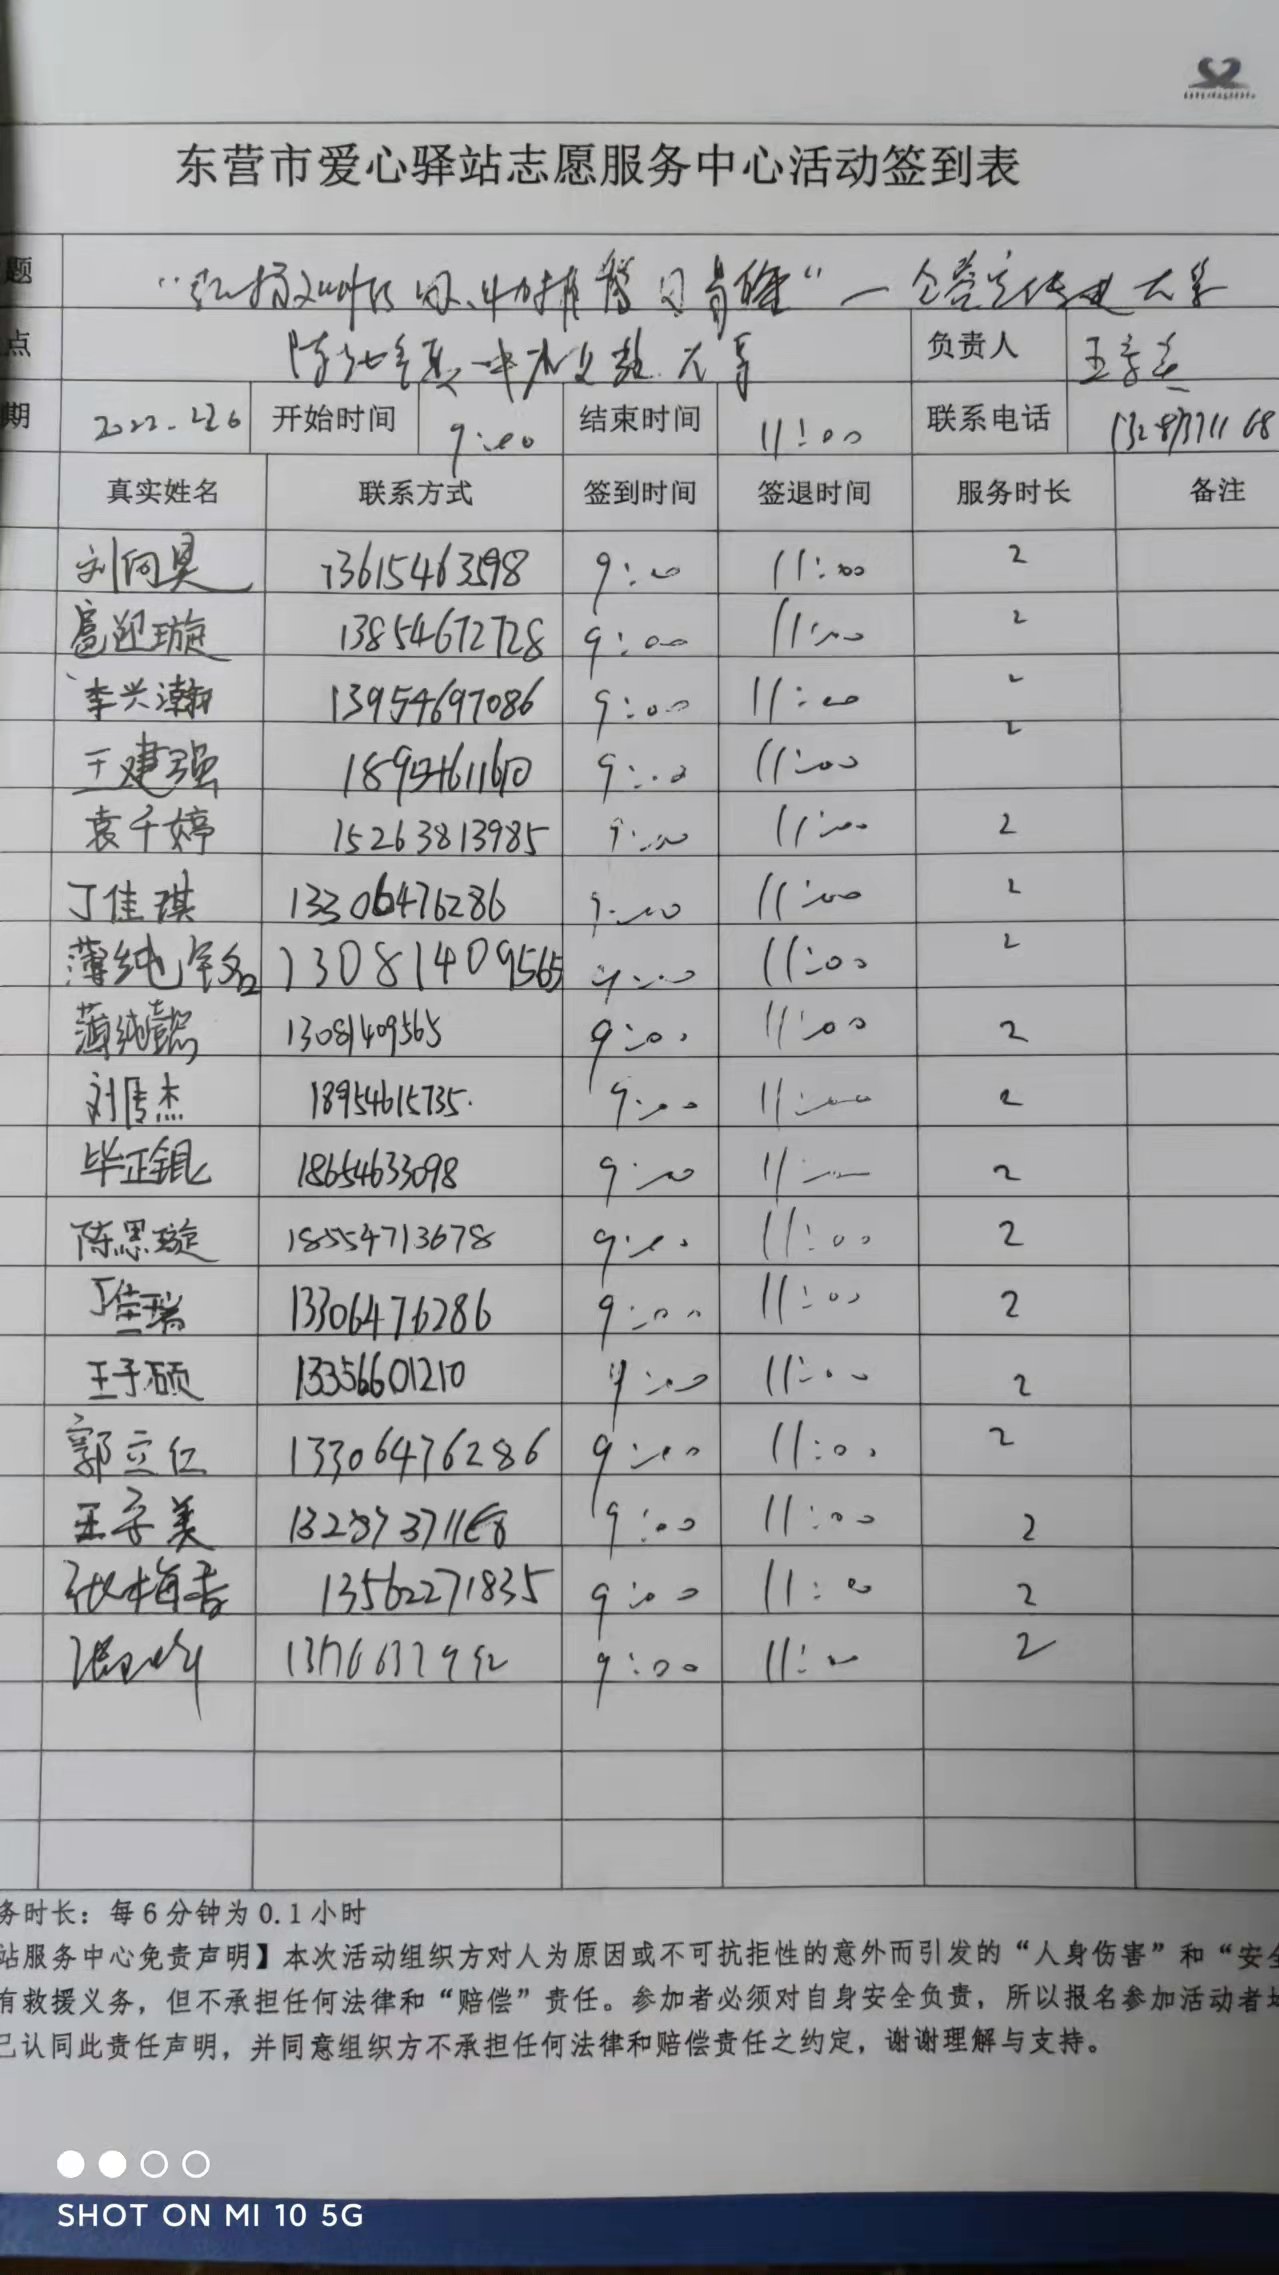 东营市爱心驿站志愿服务中心活动签到表
题
点 负责人 王子美
期 2022.2.26 开始时间 9:00 结束时间 11:00 联系电话 13287371168
真实姓名 联系方式 签到时间 签退时间 服务时长 备注
刘向昊 13615463598 9:00 11:00 2
扈迎璇 13854672728 9:00 11:00 2
李兴瀚 13954697086 9:00 11:00 2
王建强 9:00 11:00 2
袁千婷 15263813985 9:00 11:00 2
丁佳琪 13306476286 9:00 11:00 2
薄纯 13081409565 9:00 11:00 2
薄纯懿 13081409565 9:00 11:00 2
刘传杰 18954615735 9:00 11:00 2
毕正锟 18654633098 9:00 11:00 2
陈思璇 18554713678 9:00 11:00 2
丁佳瑞 13306476286 9:00 11:00 2
王子硕 13356601210 9:00 11:00 2
郭立仁 13306476286 9:00 11:00 2
王子美 13287371168 9:00 11:00 2
张梅香 13562271835 9:00 11:00 2
9:00 11:00 2
务时长：每6分钟为0.1小时
站服务中心免责声明】本次活动组织方对人为原因或不可抗拒性的意外而引发的“人身伤害”和“安全
有救援义务，但不承担任何法律和“赔偿”责任。参加者必须对自身安全负责，所以报名参加活动者均
已认同此责任声明，并同意组织方不承担任何法律和赔偿责任之约定，谢谢理解与支持。
SHOT ON MI 10 5G